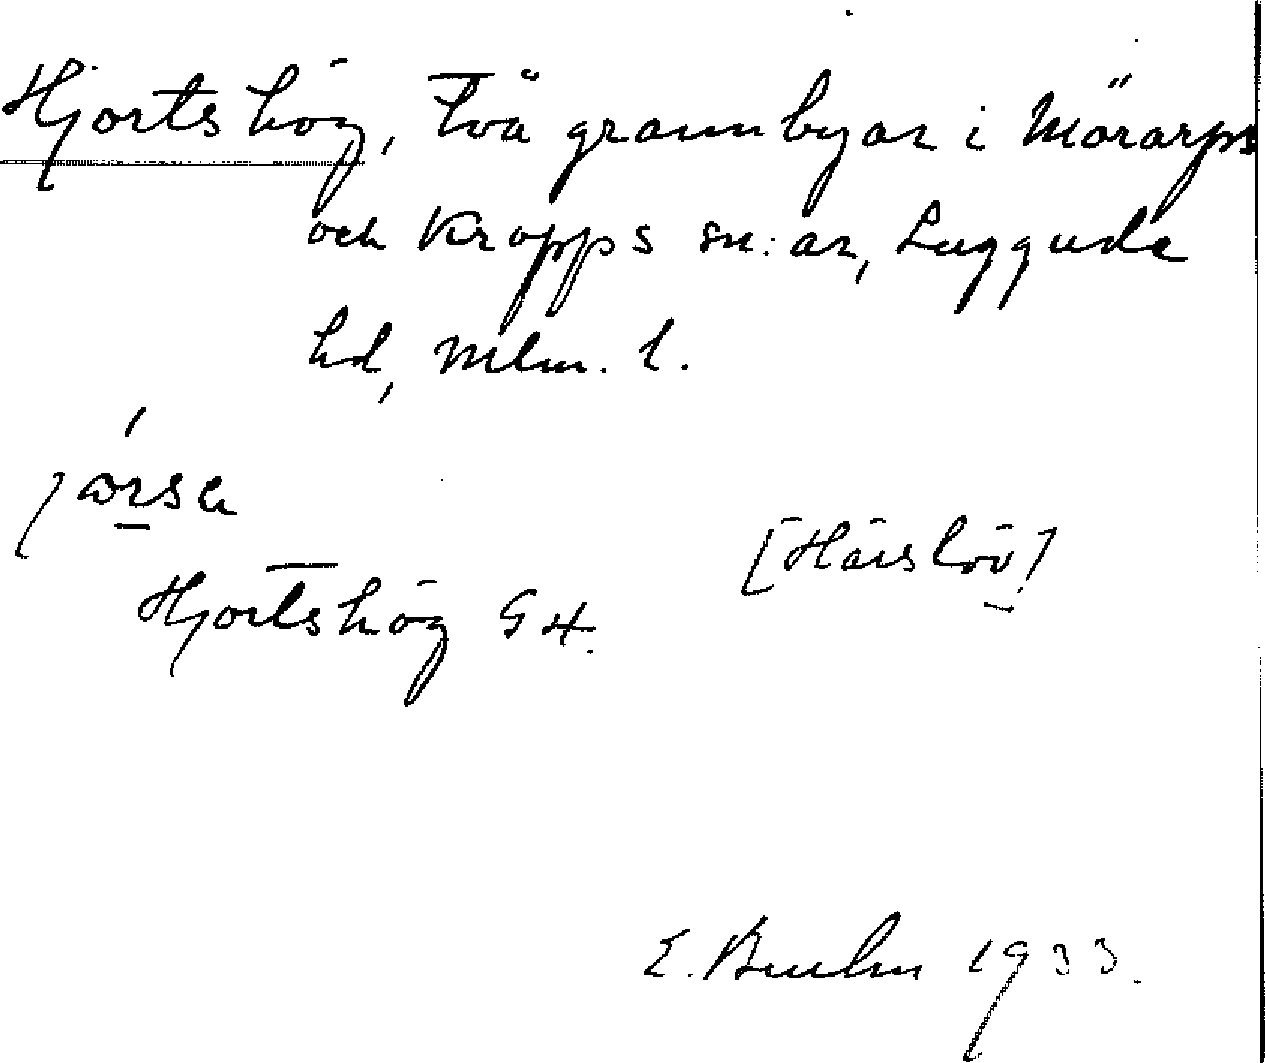 Hjortshög, två grannbyar i Mörarps
och Kropps sn:ar, Luggude
hd, Mlm. l.
[Härslöv]
Hjortshög G4.
E. Bruhn 1933.